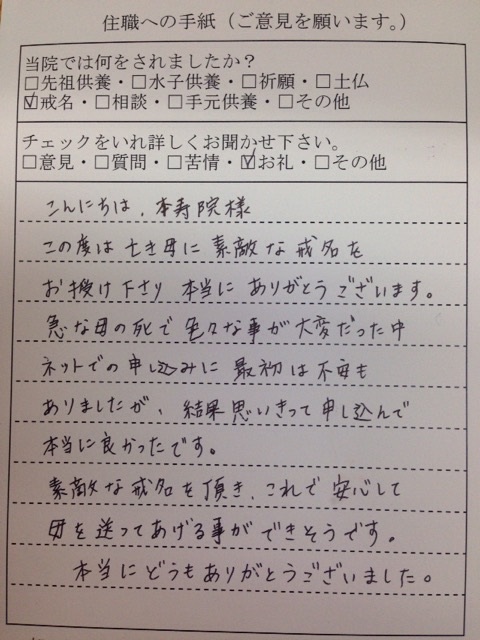 住職への手紙（ご意見を願います。）
当院では何をされましたか？
□先祖供養・□水子供養・□祈願・□土仏
☑戒名・□相談・□手元供養・□その他
チェックをいれ詳しくお聞かせ下さい。
□意見・□質問・□苦情・☑お礼・□その他
こんにちは、本寿院様
この度は亡き母に素敵な戒名を
お授け下さり本当にありがとうございます。
急な母の死で色々な事が大変だった中
ネットでの申し込みに最初は不安も
ありましたが、結果思いきって申し込んで
本当に良かったです。
素敵な戒名を頂き、これで安心して
母を送ってあげる事ができそうです。
本当にどうもありがとうございました。